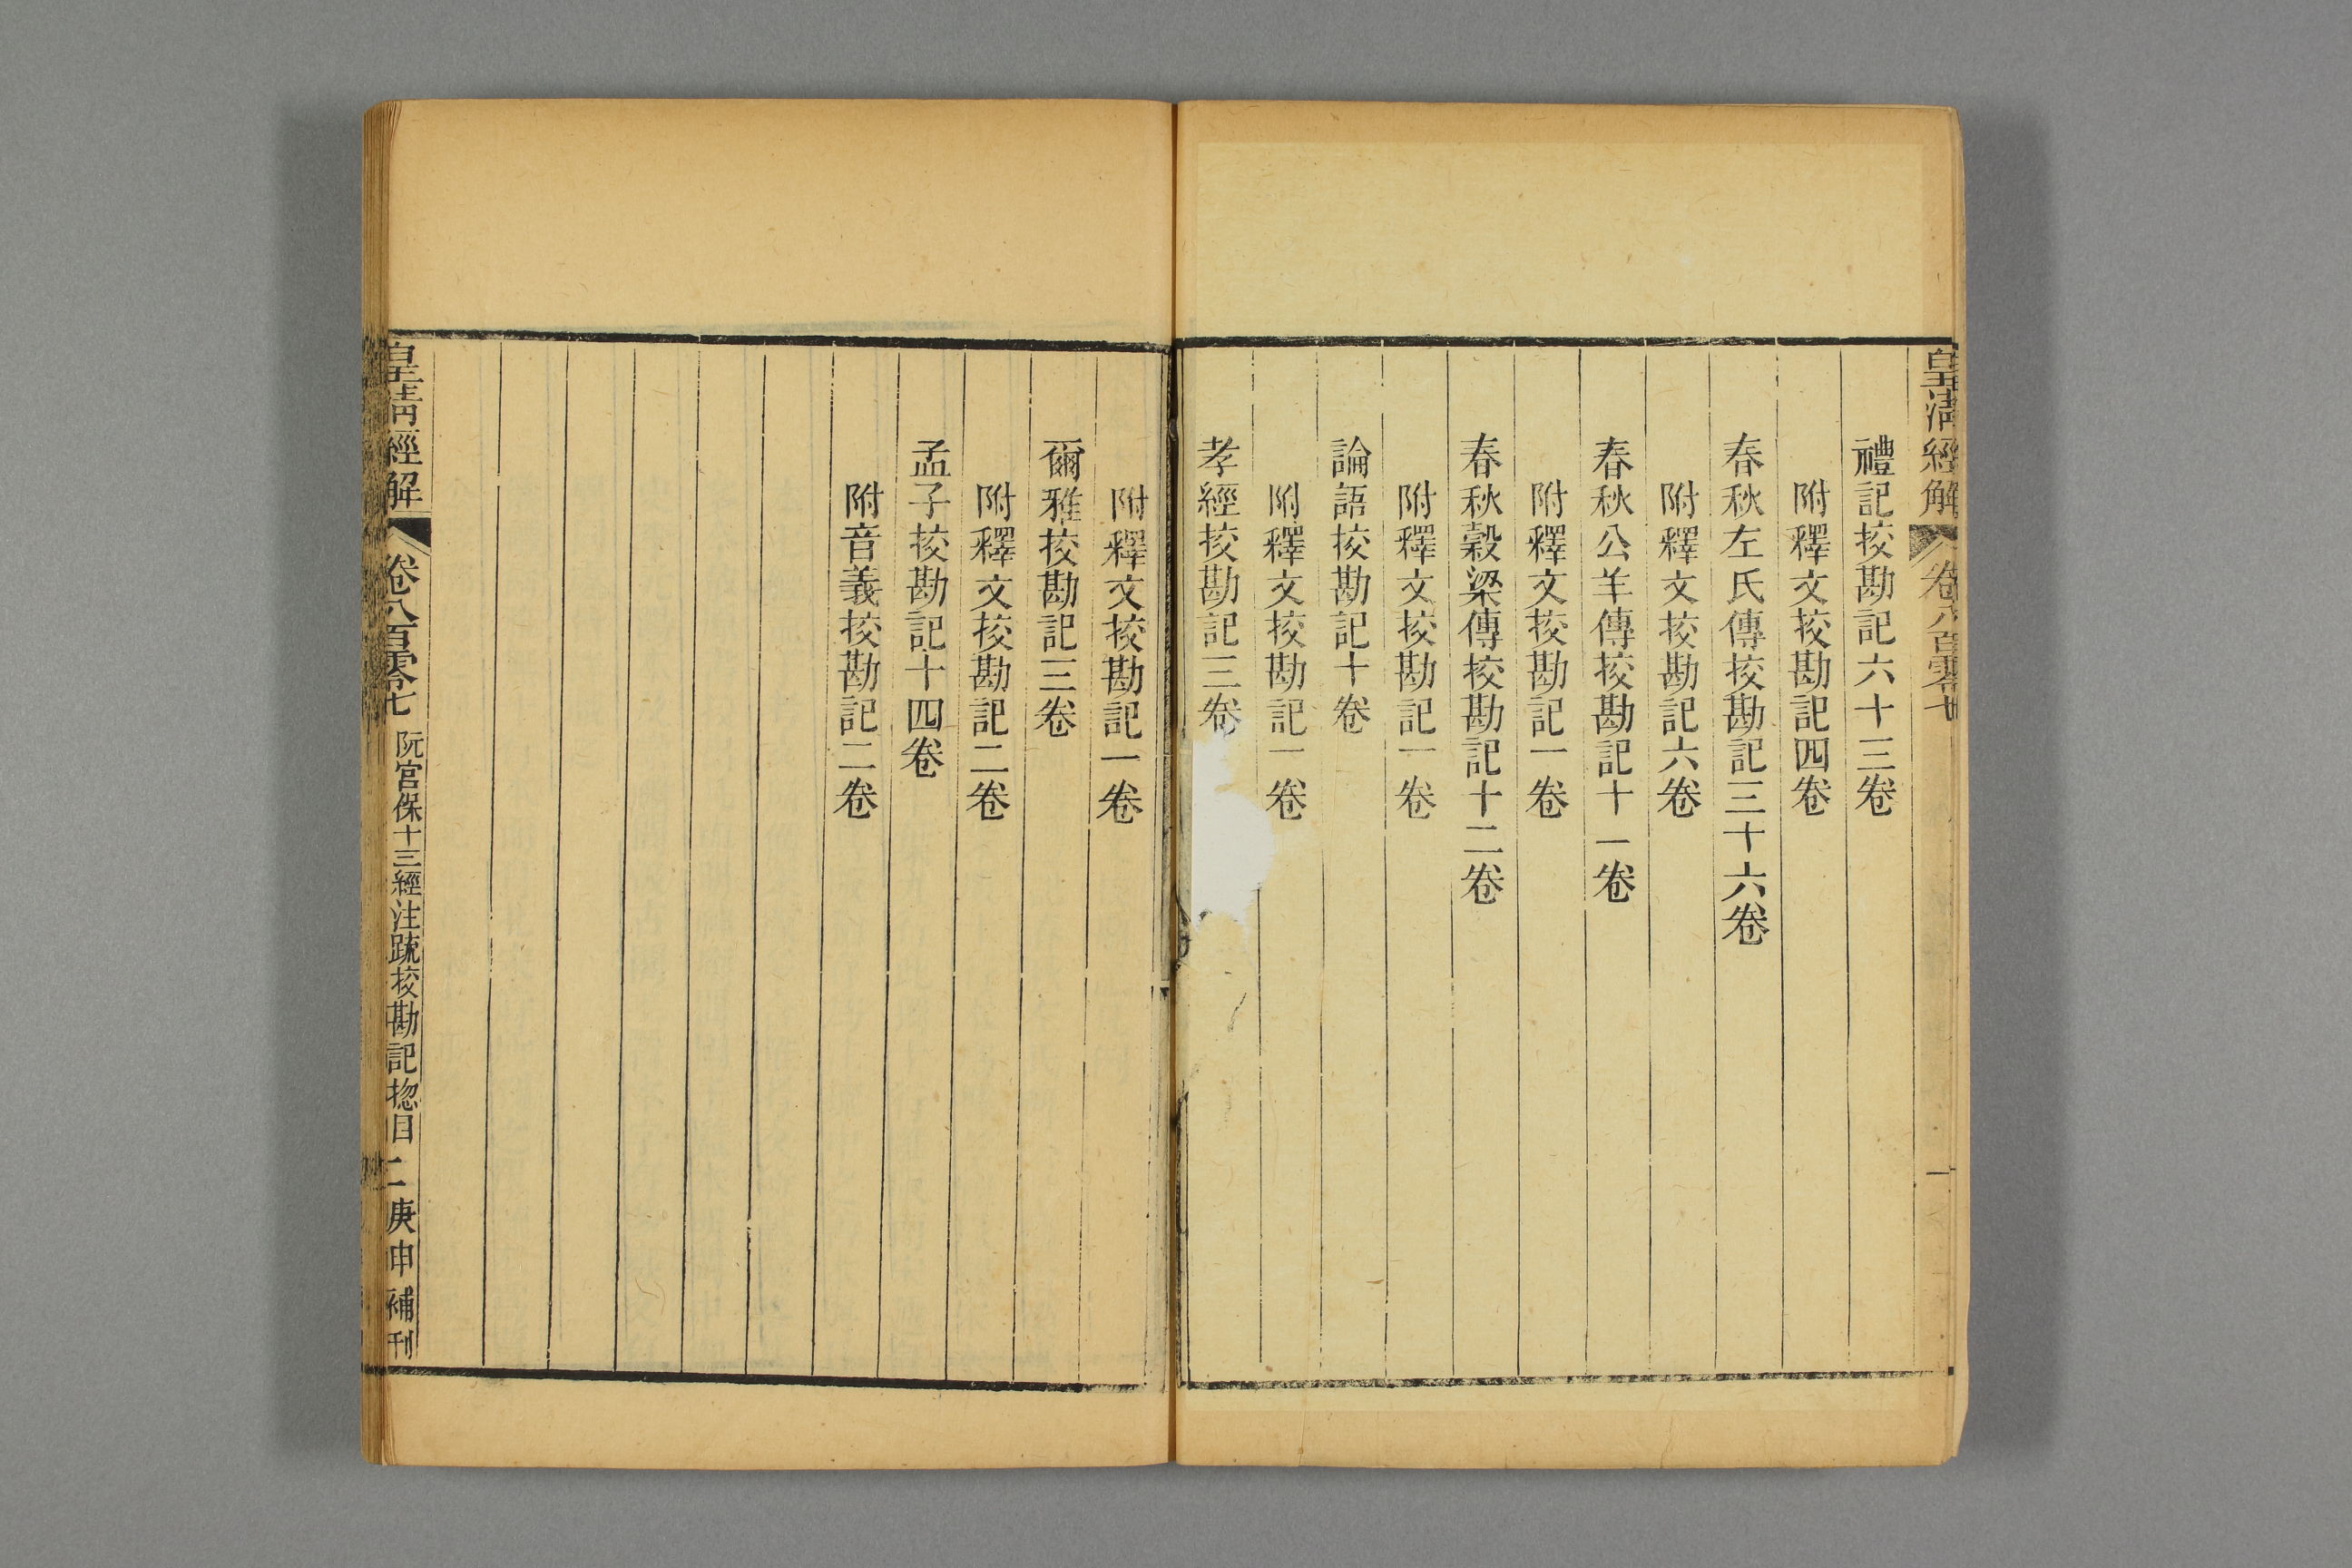 皇清經解 卷八百零七 一
禮記挍勘記六十三卷
附釋文挍勘記四卷
春秋左氏傳挍勘記三十六卷
附釋文挍勘記六卷
春秋公羊傳挍勘記十一卷
附釋文挍勘記一卷
春秋穀梁傳挍勘記十二卷
附釋文挍勘記一卷
論語挍勘記十卷
附釋文挍勘記一卷
孝經挍勘記三卷
附釋文挍勘記一卷
爾雅挍勘記三卷
附釋文挍勘記二卷
孟子挍勘記十四卷
附音義挍勘記二卷
皇清經解 卷八百零七 阮宮保十三經注疏挍勘記揔目 二 庚申補刊